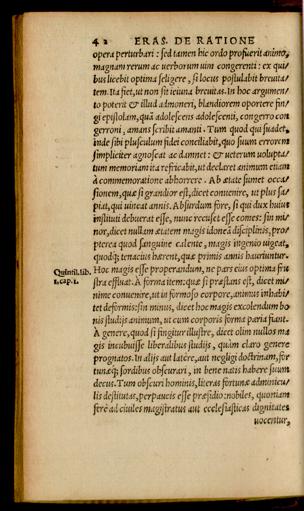 42 ERAS. DE RATIONE
opera perturbari: sed tamen hic ordo profuerit animo,
magnam rerum ac verborum uim congerenti: ex qui-
bus licebit optima seligere, si locus postulabit breuita-
tem. Ita fiet, ut non sit ieiuna breuitas. In hoc argumen-
to poterit & illud admoneri, blandiorem oportere fin-
gi epistolam, quã adolescens adolescenti, congerro con
gerroni, amans scribit amanti. Tum quod qui suadet,
inde sibi plusculum fidei conciliabit, quo suum errorem
simpliciter agnoscat ac damnet: & ueterum volupta-
tum memoriam ita refricabit, ut declaret animum etiam
à commemoratione abhorrere. Ab ætate sumet occa-
sionem, quæ si grandior est, dicet conuenire, ut plus sa-
piat, qui uincat annis. Absurdum fore, si qui dux huius
instituti debuerat esse, nunc recuset esse comes: sin mi-
nor, dicet nullam ætatem magis idoneã disciplinis, pro-
pterea quod sanguine calente, magis ingenio uigeat,
quodq; tenacius hærent, quæ primis annis hauriuntur.
Quintil. lib. Hoc magis esse properandum, ne pars eius optima fru
1. cap. 1. stra effluat. A forma item: quæ si præstans est, dicet mi-
nime conuenire, ut in formoso corpore, animus inhabi-
tet deformis: sin minus, dicet hoc magis excolendum bo
nis studijs animum, ut cum corporis forma paria fiant.
A genere, quod si fingitur illustre, dicet olim nullos ma
gis incubuisse liberalibus studijs, quàm claro genere
prognatos. In alijs aut latère, aut negligi doctrinam, for
tunæq; sordibus obscurari, in bene natis habere suum
decus. Tum obscuri hominis, literas fortunæ adminicu-
lis destitutas, perpaucis esse præsidio: nobiles, quoniam
ferè ad ciuiles magistratus aut ecclesiasticas dignitates
uocentur,